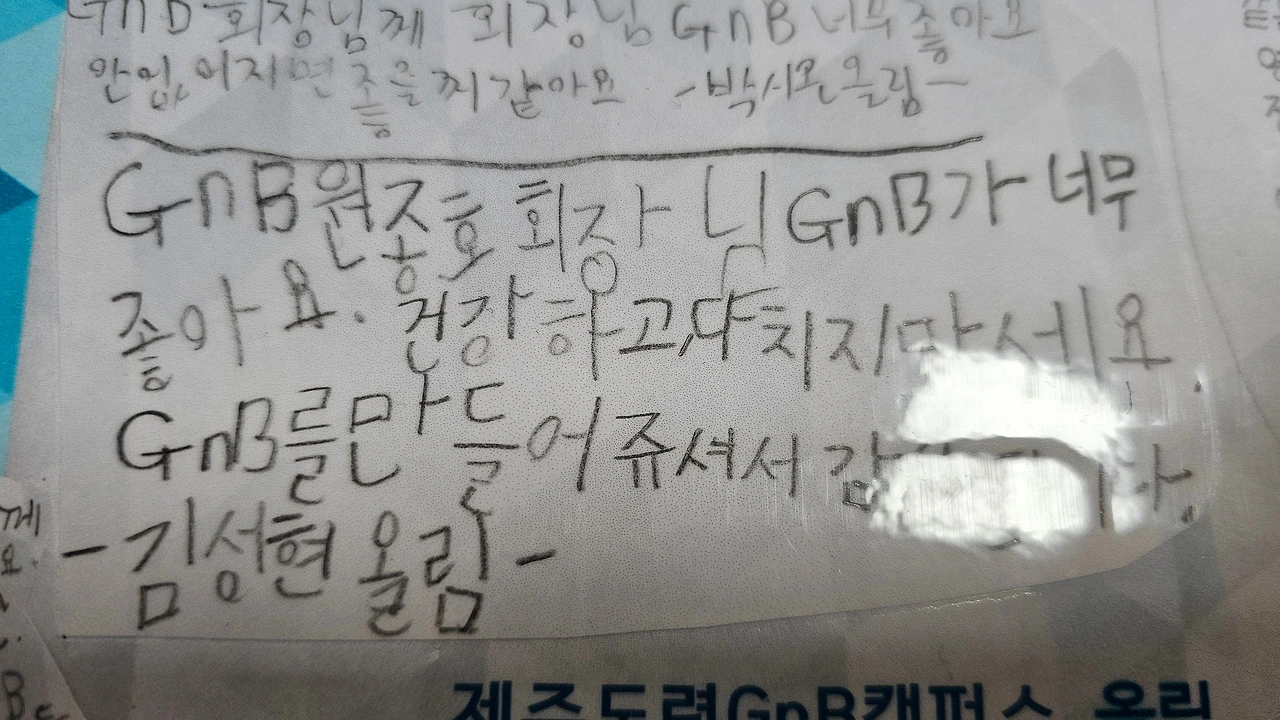 GnB 회장님께 회장님 GnB 너무 좋아요
안 없어지면 좋을 찌 같아요 -박시온 올림-
GnB 원종호 회장님 GnB가 너무
좋아요. 건강하고, 다치지 마세요.
GnB를 만들어 쥬셔서
-김성현 올림-
제주도련GnB캠퍼스 올림
께
요.